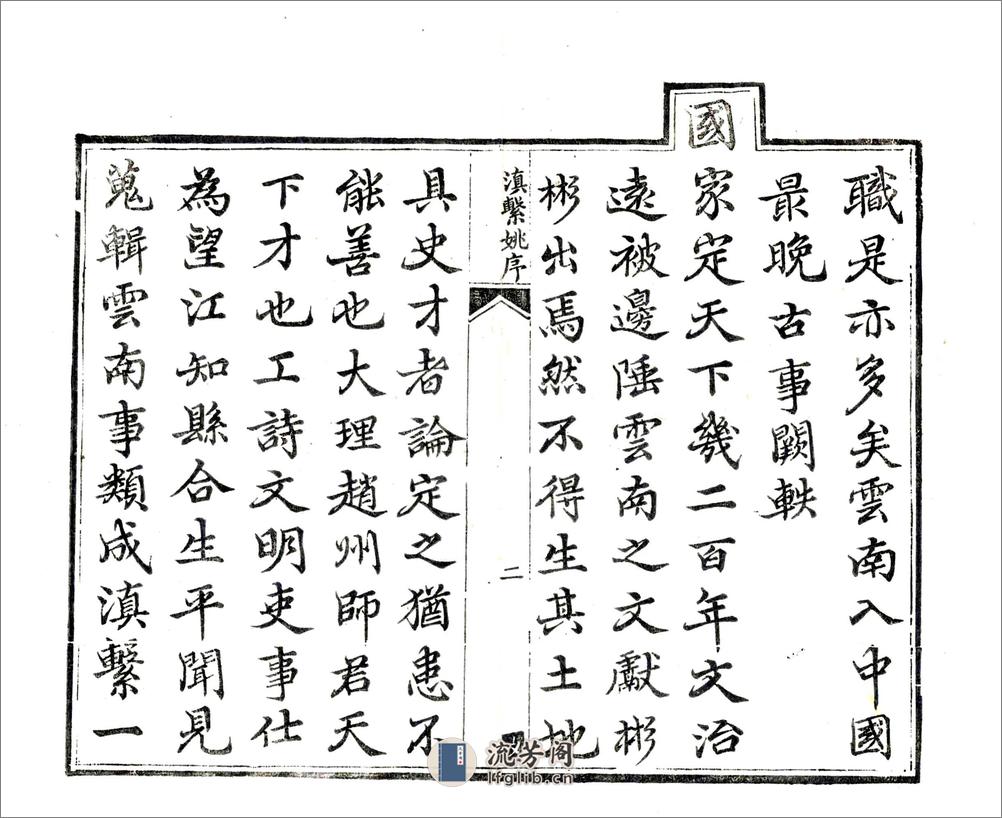 職是亦多矣雲南入中國
最晚古事闕軼
國
家定天下幾二百年文治
遠被邊陲雲南之文獻彬
彬出焉然不得生其土地
滇繫姚序
二
具史才者論定之猶患不
能善也大理趙州師君天
下才也工詩文明吏事仕
為望江知縣合生平聞見
蒐輯雲南事類成滇繫一
流芳阁
lfglib.cn